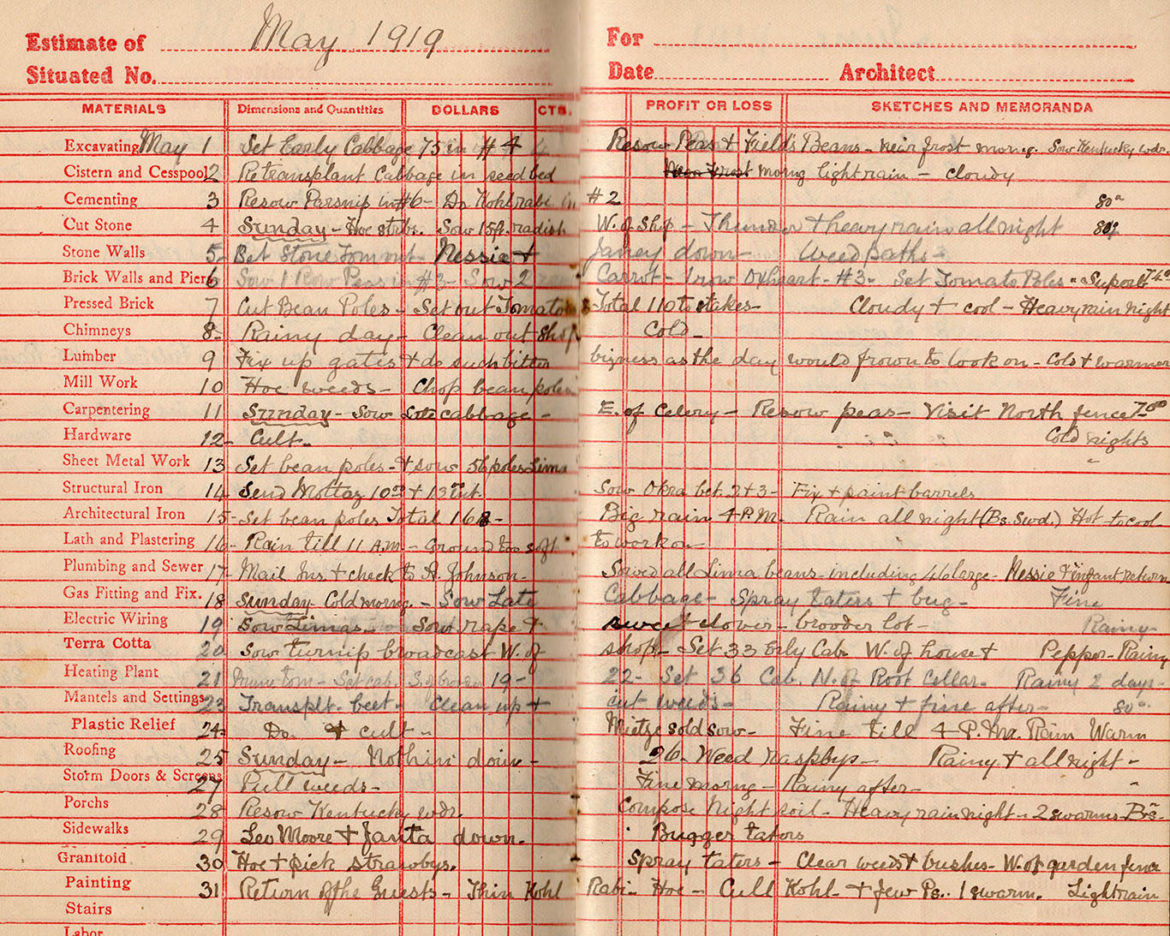 Estimate of May 1919 For
Situated No. Date Architect
MATERIALS Dimensions and Quantities DOLLARS CTS. PROFIT OR LOSS SKETCHES AND MEMORANDA
Excavating May 1 Set Early Cabbage 75 in #4 Resow Peas & Field's Beans - frost morng. Sow Kentucky wdr.
Cistern and Cesspool 2 Retransplant Cabbage in seed bed morng light rain - Cloudy
Cementing 3 Resow Parsnip in #6 - Do Kohlrabi in #2 80°
Cut Stone 4 Sunday - Hoe strbr. Sow 15ft. radish W. of Shop - Thunder & heavy rain all night 80°
Stone Walls 5 - Bet Stone Tom out - Nessie & Janey down - Weed paths -
Brick Walls and Piers 6 Sow 1 Row Peas in #3 - Sow 2 Carrot - 1 row Oxheart - #3 - Set Tomato Poles
Pressed Brick 7 Cut Bean Poles - Set out Tomato Total 110 to stakes - Cloudy & cool - Heavy rain night
Chimneys 8 - Rainy day - Clean out Shop Cold -
Lumber 9 Fix up gates & do such bizness as the day would frown to look on - Cold & warmer
Mill Work 10 Hoe weeds - Chop bean poles
Carpentering 11 Sunday - Sow cabbage - E. of Celery - Resow peas - Visit North fence
Hardware 12 - Cult - " " " Cold nights
Sheet Metal Work 13 Set bean poles - & sow 56 poles Lima "
Structural Iron 14 Send 10 & 13 Sow Okra bet. 2 & 3 - Fix & paint barrels
Architectural Iron 15 - Set bean poles Total 168 - Big rain 4 P.M. - Rain all night (Bs. Swd.) Hot to cool -
Lath and Plastering 16 - Rain till 11 A.M. - Ground too soft to work on -
Plumbing and Sewer 17 - Mail Ins. & check to A. Johnson - Sowed all Lima beans - including 46 large - Nessie & infant return
Gas Fitting and Fix. 18 Sunday - Cold morng. - Sow Late Cabbage - Spray taters & bug - Fine
Electric Wiring 19 Sow Limas - Sow rape & sweet clover - brooder lot - Rainy -
Terra Cotta 20 Sow turnip broadcast W. of shop - Set 33 Erly Cab. W. of house & Pepper - Rainy
Heating Plant 21 tom - Set cab. 19 - 22 - Set 36 Cab. N. of Root Cellar - Rainy 2 days -
Mantels and Settings 23 Transplt. beet - Clean up & cut weeds - Rainy & fine after - 80°
Plastic Relief 24 - Do. & cult - Mietze sold sow - Fine till 4 P.M. Rain Warm
Roofing 25 Sunday - Nothin' doin - 26 - Weed raspbys - Rainy & all night -
Storm Doors & Screens 27 Pull weeds - Fine morng - Rainy after - "
Porchs 28 Resow Kentucky wdr. Compose Night soil - Heavy rain night - 2 swarms Bs -
Sidewalks 29 Leo Moore & Janta down. Bugger taters
Granitoid 30 Hoe & pick strawbys. Spray taters - Clear weeds & bushes - W. of garden fence
Painting 31 Return of the Guests - Thin Kohl Rabi - Hoe - Cull Kohl - & few Ps. 1 swarm. Light rain
Stairs
Labor